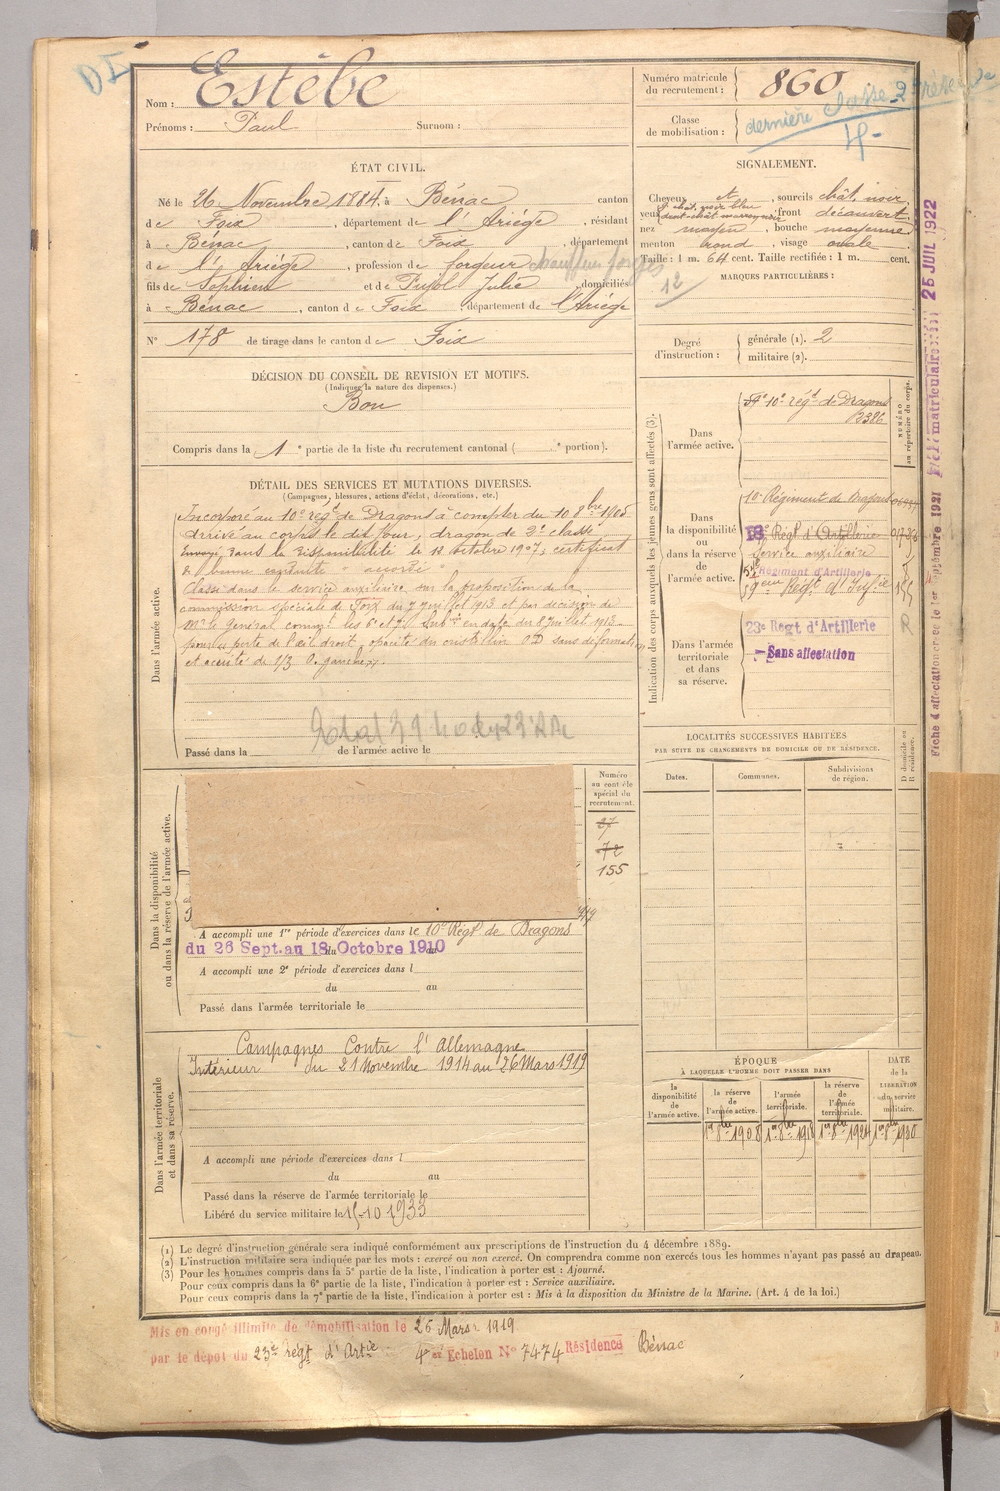 DI
Nom : Estèbe
Prénoms : Paul Surnom :
Numéro matricule
du recrutement : 860
Classe
de mobilisation :
dernière classe 2
ÉTAT CIVIL.
Né le 26 Novembre 1884, à Bénac canton
de Foix, département de l'Ariège, résidant
à Bénac, canton de Foix, département
de l'Ariège, profession de forgeur
fils de Sophien et de Pujol Julie, domiciliés
à Bénac, canton de Foix, département de l'Ariège
12
N° 178 de tirage dans le canton de Foix
SIGNALEMENT.
Cheveux, sourcils chât. noir
yeux, front découvert
nez moyen, bouche moyenne
menton rond, visage ovale
Taille : 1 m. 64 cent. Taille rectifiée : 1 m. cent.
MARQUES PARTICULIÈRES :
Degré
d'instruction :
générale (1). 2
militaire (2).
DÉCISION DU CONSEIL DE REVISION ET MOTIFS.
(Indiquer la nature des dispenses.)
Bon
Compris dans la 1e partie de la liste du recrutement cantonal ( e portion).
DÉTAIL DES SERVICES ET MUTATIONS DIVERSES.
(Campagnes, blessures, actions d'éclat, décorations, etc.)
Dans l'armée active.
Incorporé au 10e régt de Dragons à compter du 10 8bre 1905
arrivé au corps le dit jour, dragon de 2e classe
Envoyé dans la disponibilité le 12 Octobre 1907, certificat
de bonne conduite " accordé "
Classé dans le service auxiliaire sur la proposition de la
commission spéciale de Foix du 7 juillet 1913 et par décision de
Mr le Général command. les 6e et 7e Subons en date du 8 Juillet 1913
pour perte de l'œil droit, opacité du cristallin OD sans déformation
et acuité de 1/3 O. gauche.
Passé dans la de l'armée active le
Indication des corps auxquels les jeunes gens sont affectés (3).
NUMÉRO
au répertoire du corps.
Dans
l'armée active.
10e régt de Dragons
2386
Dans
la disponibilité
ou
dans la réserve
de
l'armée active.
10e Régiment de Dragons
18e Régt d'Artillerie
Service auxiliaire
Régiment d'Artillerie
59ème Régt d'Infie
Dans l'armée
territoriale
et dans
sa réserve.
23e Régt d'Artillerie
Sans affectation
Fiche d'affectation créée le 1er Septembre 1921
Fiche matriculaire 25 JUIL 1922
LOCALITÉS SUCCESSIVES HABITÉES
PAR SUITE DE CHANGEMENTS DE DOMICILE OU DE RÉSIDENCE.
Dates. Communes. Subdivisions
de région.
D domicile ou
R résidence.
Dans la disponibilité
ou dans la réserve de l'armée active.
Numéro
au contrôle
spécial du
recrutement.
27
72
155
A accompli une 1re période d'exercices dans le 10e Régt de Dragons
du 26 Sept. au 18 Octobre 1910
A accompli une 2e période d'exercices dans l
du au
Passé dans l'armée territoriale le
Dans l'armée territoriale
et dans sa réserve.
Campagnes Contre l'Allemagne
Intérieur du 21 Novembre 1914 au 26 Mars 1919
A accompli une période d'exercices dans l
du au
Passé dans la réserve de l'armée territoriale le
Libéré du service militaire le 15-10 1933
ÉPOQUE
À LAQUELLE L'HOMME DOIT PASSER DANS
DATE
de la
LIBÉRATION
du service
militaire.
la
disponibilité
de
l'armée active.
la réserve
de
l'armée active.
l'armée
territoriale.
la réserve
de
l'armée
territoriale.
1er 8bre 1908
(1) Le degré d'instruction générale sera indiqué conformément aux prescriptions de l'instruction du 4 décembre 1889.
(2) L'instruction militaire sera indiquée par les mots : exercé ou non exercé. On comprendra comme non exercés tous les hommes n'ayant pas passé au drapeau.
(3) Pour les hommes compris dans la 5e partie de la liste, l'indication à porter est : Ajourné.
Pour ceux compris dans la 6e partie de la liste, l'indication à porter est : Service auxiliaire.
Pour ceux compris dans la 7e partie de la liste, l'indication à porter est : Mis à la disposition du Ministre de la Marine. (Art. 4 de la loi.)
Mis en congé illimité de démobilisation le 26 Mars 1919
par le dépôt du 23e régt d'Artie 4e Echelon N° 7474 Résidence Bénac